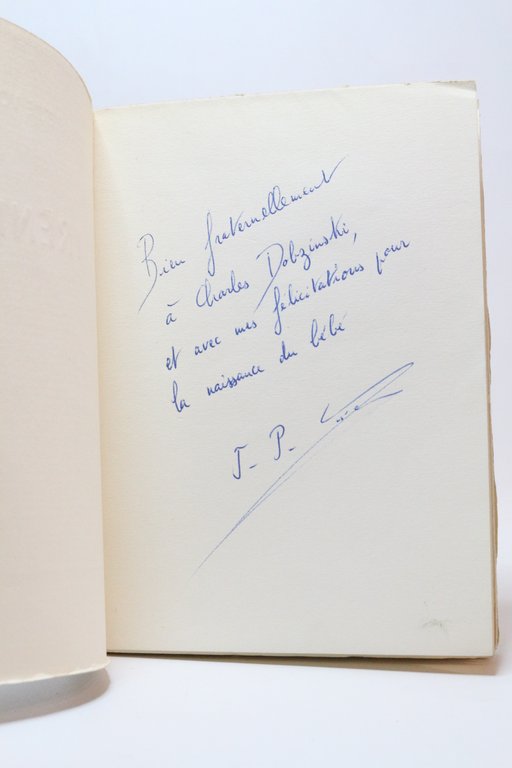 Bien fraternellement
à Charles Dobzinski,
et avec mes félicitations pour
la naissance du bébé
J- P-